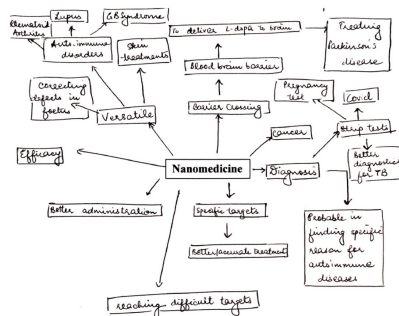 Rheumatoid
Arthritis
Lupus
GB Syndrome
To deliver L-dopa to brain
Treating
Parkinson's
disease
Auto-immune
disorders
Skin
treatments
Blood brain barrier
Pregnancy
test
Covid
Correcting
defects in
foetus
Versatile
Barrier Crossing
Cancer
Strip tests
Efficacy
Nanomedicine
Diagnosis
Better
diagnostics
for TB
Better administration
Specific targets
Better/accurate treatment
Probable in
finding specific
reason for
autoimmune
diseases
reaching difficult targets